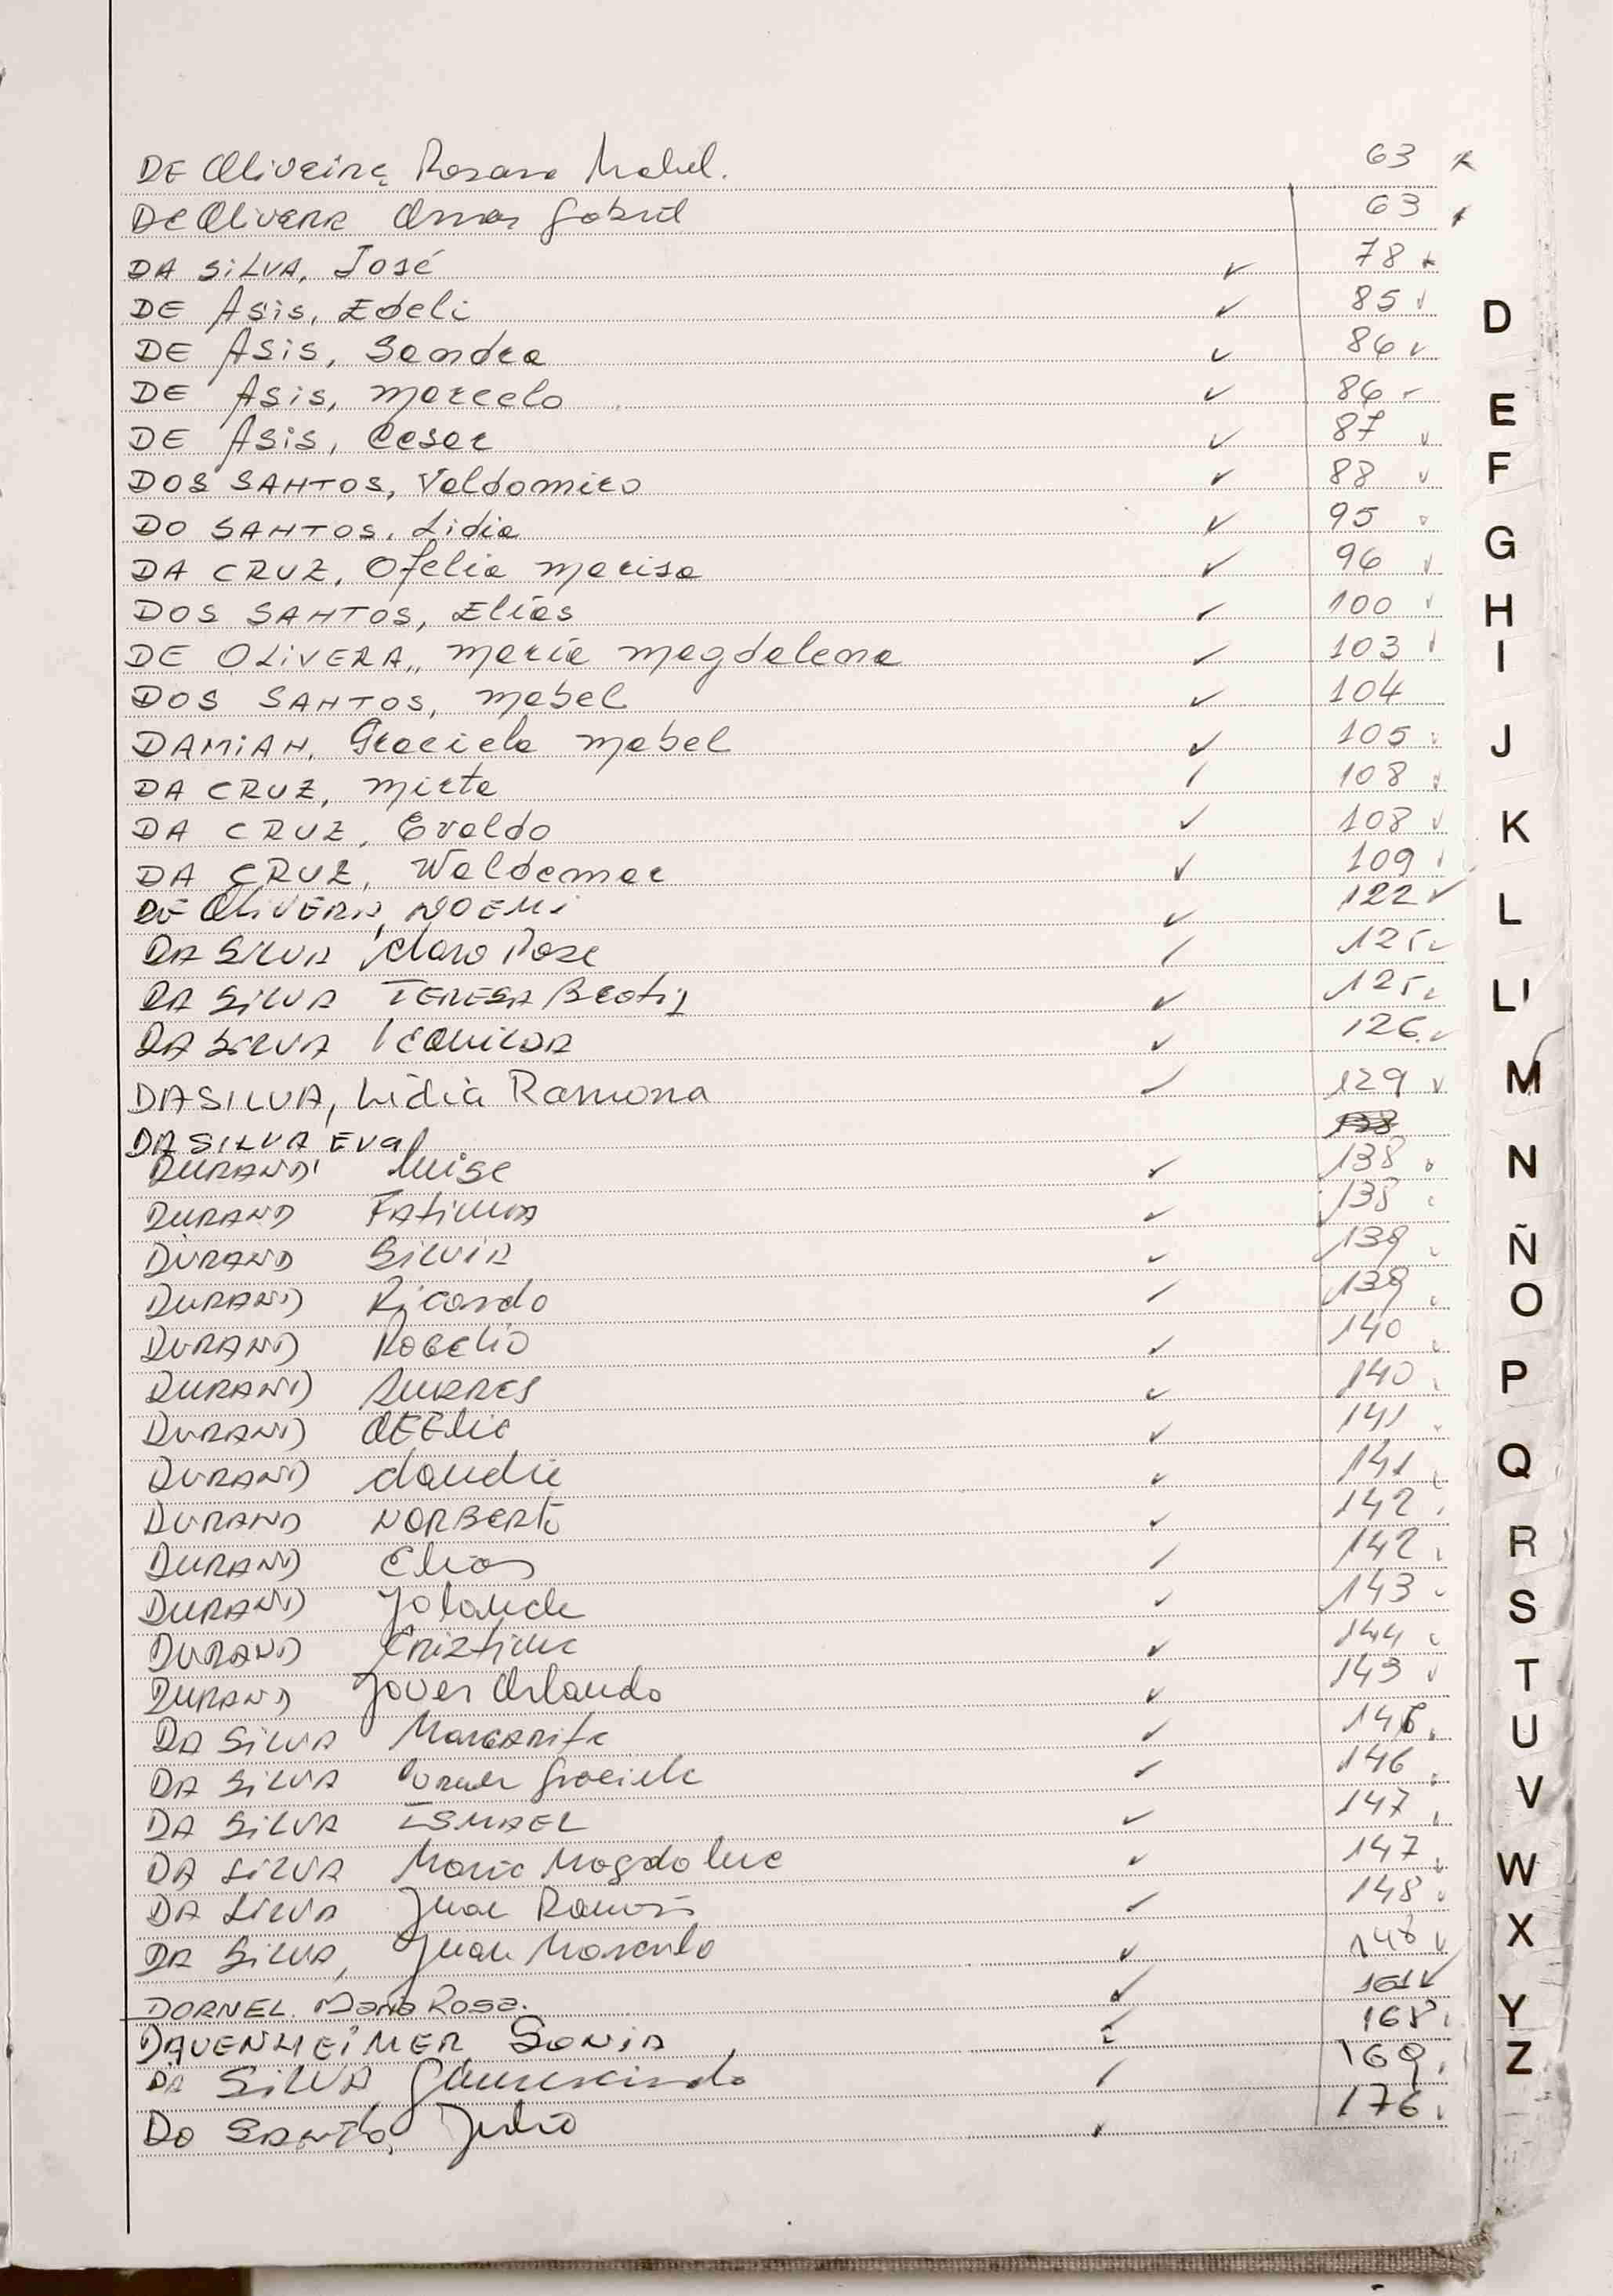 DE Oliveira Rosana Mabel. 63
De Olivera Omar Gabriel 63
DA SILVA, José 78
DE Asis, Edeli 85
DE Asis, Sandra 86
DE Asis, Marcelo 86
DE Asis, Cesar 87
DOS SANTOS, Valdomiro 88
DO SANTOS, Lidia 95
DA CRUZ, Ofelia Marisa 96
DOS SANTOS, Elías 100
DE OLIVERA, María Magdalena 103
DOS SANTOS, Mabel 104
DAMIAN, Graciela Mabel 105
DA CRUZ, Mirta 108
DA CRUZ, Evaldo 108
DA CRUZ, Waldemar 109
DE OLIVERA, NOEMI 122
DA SILVA Claro Jose 125
DA SILVA TERESA Beatriz 125
DA SILVA 126
DA SILVA, Lidia Ramona 129
DA SILVA Eva
DURAND Luisa 138
DURAND FATIMA 138
DURAND SILVIA 139
DURAND Ricardo 139
DURAND ROGELIO 140
DURAND 140
DURAND 141
DURAND Claudia 141
DURAND NORBERTO 142
DURAND Elias 142
DURAND Yolanda 143
DURAND Criztina 144
DURAND Orlando 143
DA SILVA MARGARITA 146
DA SILVA Graciela 146
DA SILVA ISMAEL 147
DA SILVA Maria Magdalena 147
DA SILVA Juan Ramón 148
DA SILVA, Juan Marcelo 148
DORNEL. María Rosa. 161
DAUENHEIMER SONIA 168
DA SILVA Gumercindo 169
DO SANTO, Julio 176
D
E
F
G
H
I
J
K
L
Ll
M
N
Ñ
O
P
Q
R
S
T
U
V
W
X
Y
Z